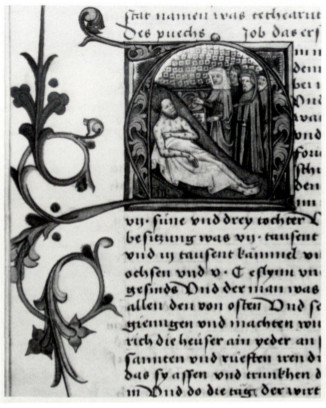 stat namen was
Des puechs Job das er
vij· süne vnd drey tochter
besitzung was vij· tausent
vnd iij tausent kämmel vn
ochsen vnd v· C eslynn vn
gesinds Vnd der man was
allen den von osten Vnd se
giengen vnd machten
rich die heüser ain yeder an
sannten vnd rüeften
das sy assen vnd trunkhen
Vnd do die täg der wirt